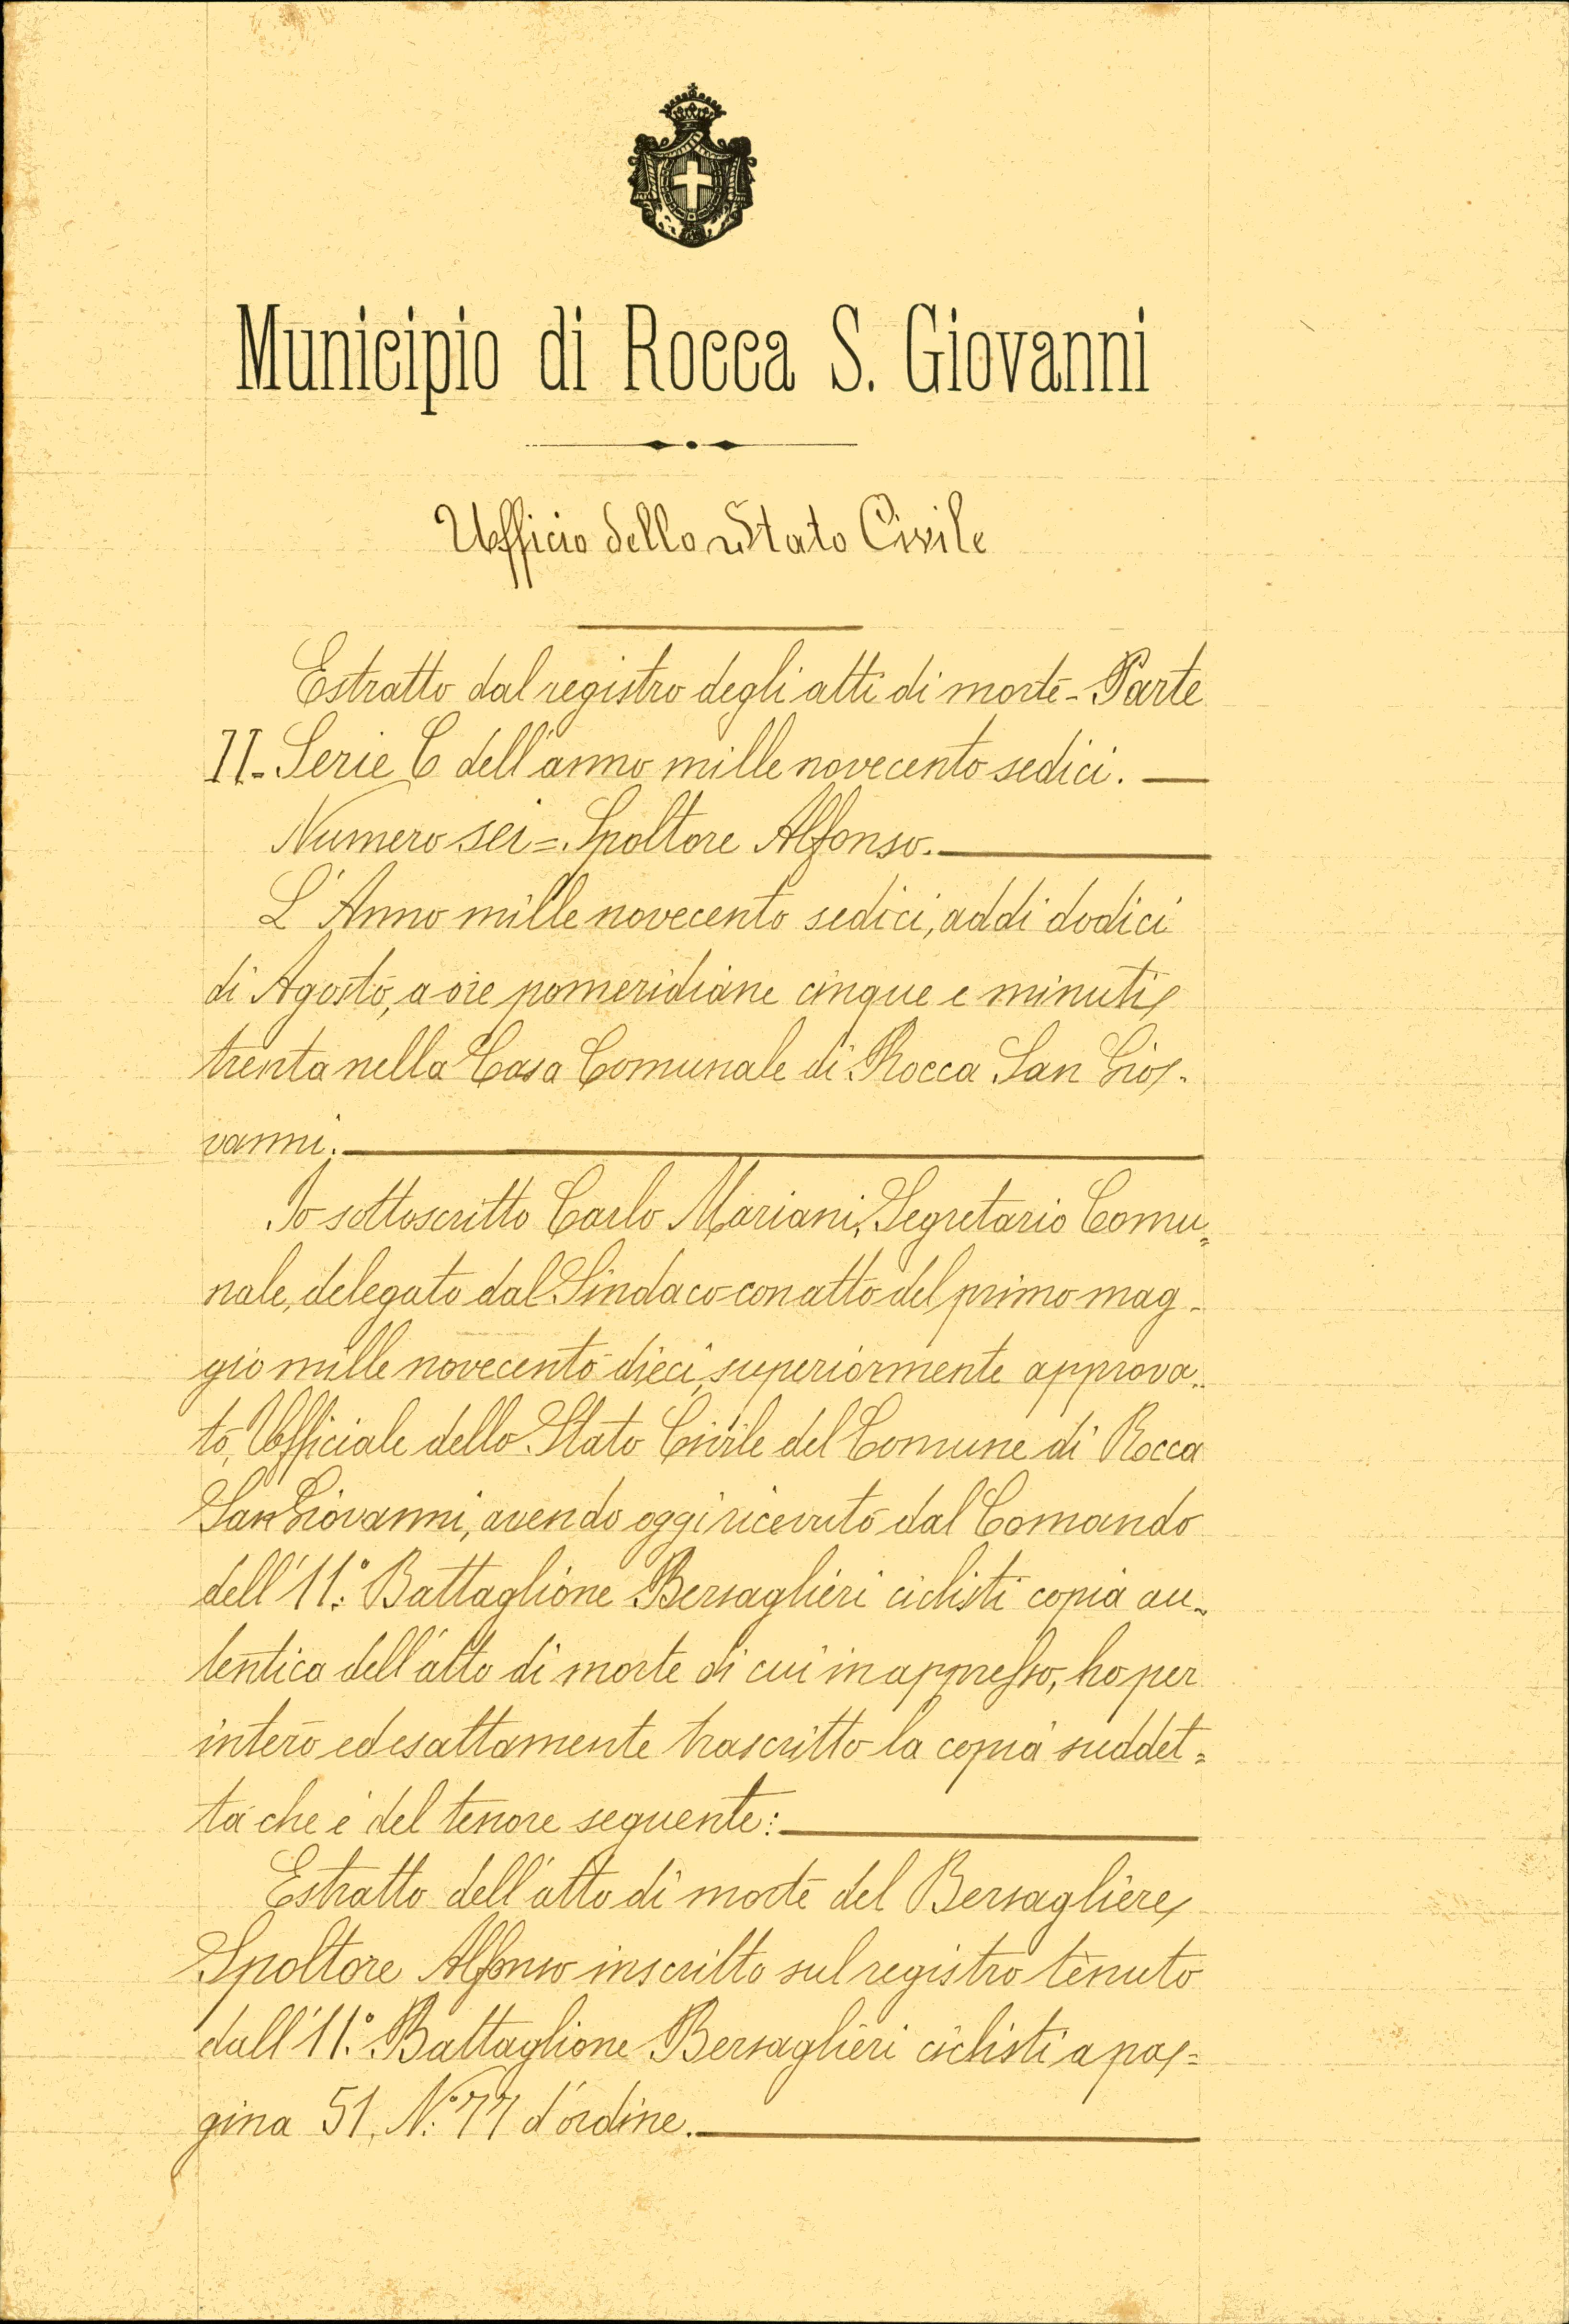 Municipio di Rocca S. Giovanni
Ufficio dello Stato Civile
Estratto dal registro degli atti di morte - Parte
II - Serie C dell'anno mille novecento sedici.
Numero sei = Spoltore Alfonso.
L'Anno mille novecento sedici, addi dodici
di Agosto, a ore pomeridiane cinque e minuti
trenta nella Casa Comunale di Rocca San Gio-
vanni.
Io sottoscritto Carlo Mariani, Segretario Comu=
nale, delegato dal Sindaco con atto del primo mag-
gio mille novecento dieci, superiormente approva-
to, Ufficiale dello Stato Civile del Comune di Rocca
San Giovanni, avendo oggi ricevuto dal Comando
dell'11° Battaglione Bersaglieri ciclisti copia au=
tentica dell'atto di morte di cui in appresso, ho per
intero ed esattamente trascritto la copia suddet=
ta che è del tenore seguente:
Estratto dell'atto di morte del Bersagliere
Spoltore Alfonso inscritto sul registro tenuto
dall'11° Battaglione Bersaglieri ciclisti a pa=
gina 51, N° 77 d'ordine.